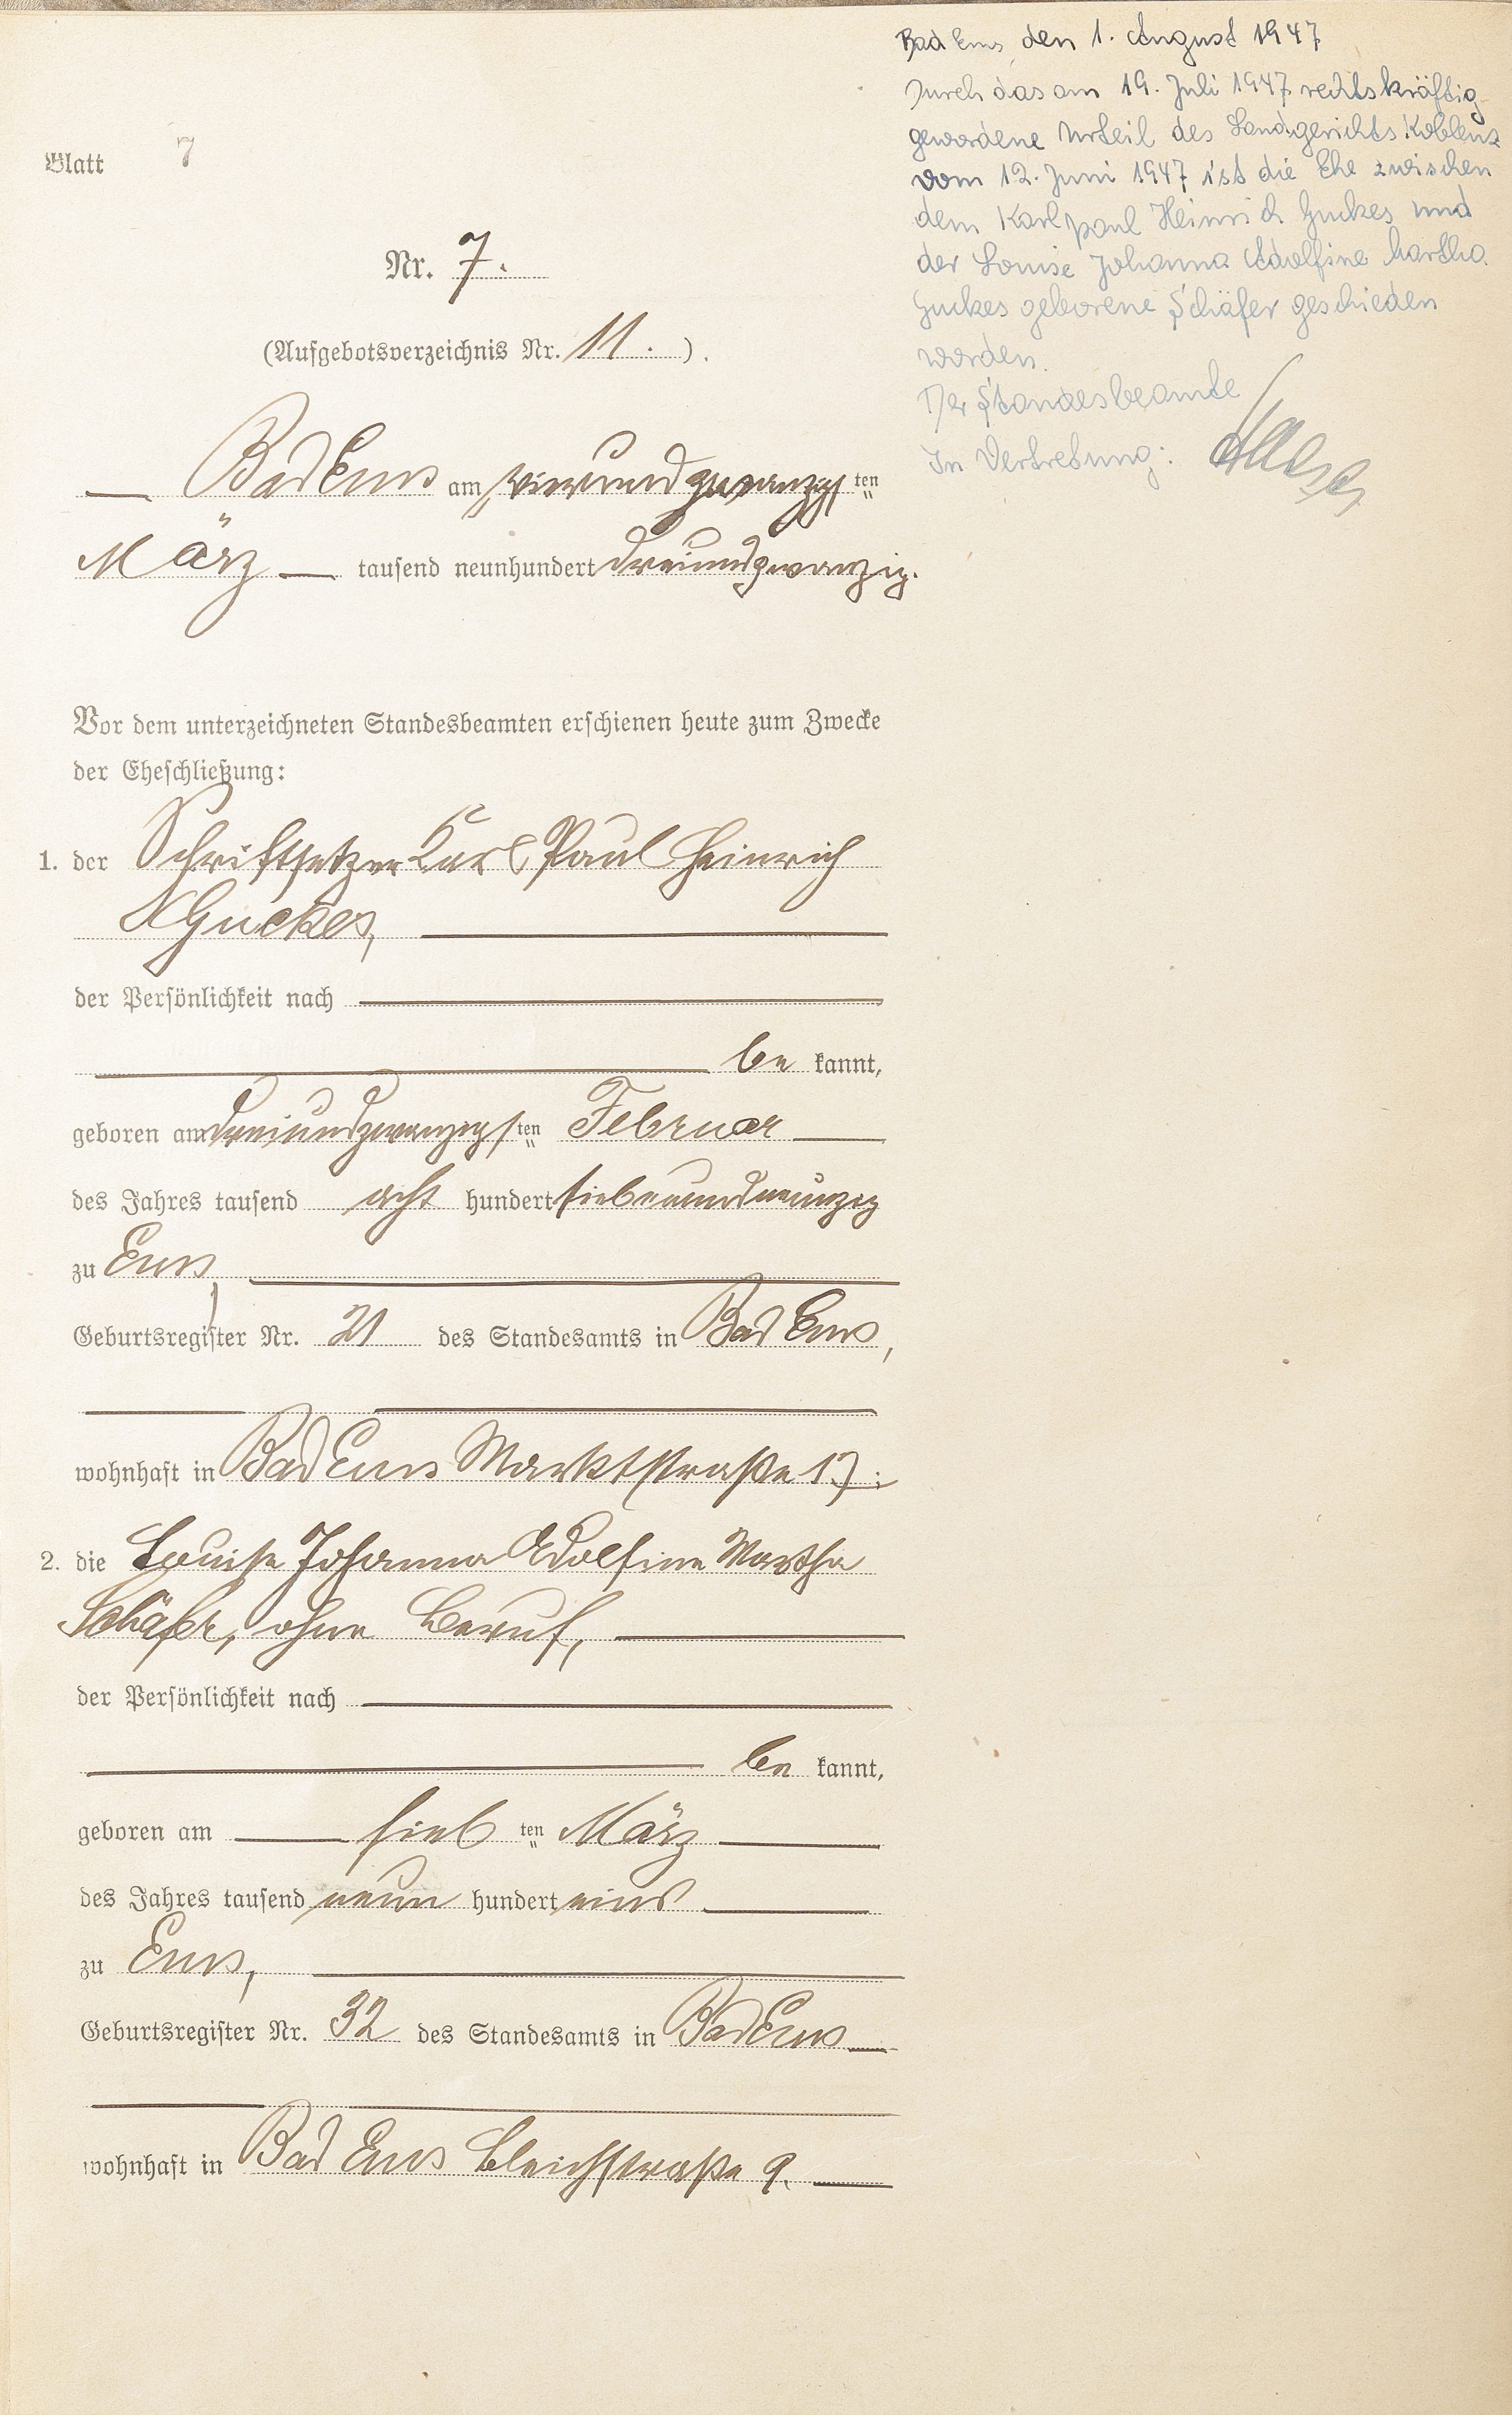 Blatt 7
Nr. 7.
(Aufgebotsverzeichnis Nr. 11.).
Bad Ems am vierundzwanzigsten
März tausend neunhundert dreiundzwanzig.
Vor dem unterzeichneten Standesbeamten erschienen heute zum Zwecke
der Eheschließung:
1. der Schriftsetzer Karl Paul Heinrich
Guckes,
der Persönlichkeit nach
be kannt,
geboren am dreiundzwanzigsten Februar
des Jahres tausend acht hundert siebenundneunzig
zu Ems,
Geburtsregister Nr. 21 des Standesamts in Bad Ems,
wohnhaft in Bad Ems Marktstraße 17;
2. die Louise Johanna Adolfine Martha
Schäfer, ohne Beruf,
der Persönlichkeit nach
be kannt,
geboren am sieb ten März
des Jahres tausend neun hundert eins
zu Ems,
Geburtsregister Nr. 32 des Standesamts in Bad Ems
wohnhaft in Bad Ems Bleichstraße 9.
Bad Ems, den 1. August 1947
Durch das am 19. Juli 1947 rechtskräftig
gewordene Urteil des Landgerichts Koblenz
vom 12. Juni 1947 ist die Ehe zwischen
dem Karl Paul Heinrich Guckes und
der Louise Johanna Adolfine Martha
Guckes geborene Schäfer geschieden
worden.
Der Standesbeamte
In Vertretung: